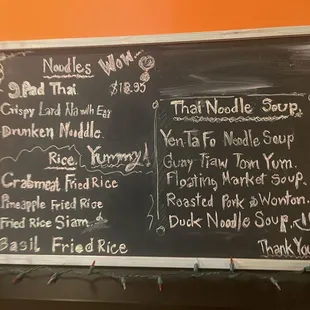 Noodles Wow
Pad Thai $18.95
Crispy Lard Ala with Egg
Drunken Noddle
Rice Yummy!
Crabmeat Fried Rice
Pineapple Fried Rice
Fried Rice Siam
Basil Fried Rice
Thai Noodle Soup.
Yen Ta Fo Noodle Soup
Guay Tiaw Tom Yum.
Floating Market Soup.
Roasted Pork & Wonton.
Duck Noodle Soup.
Thank You